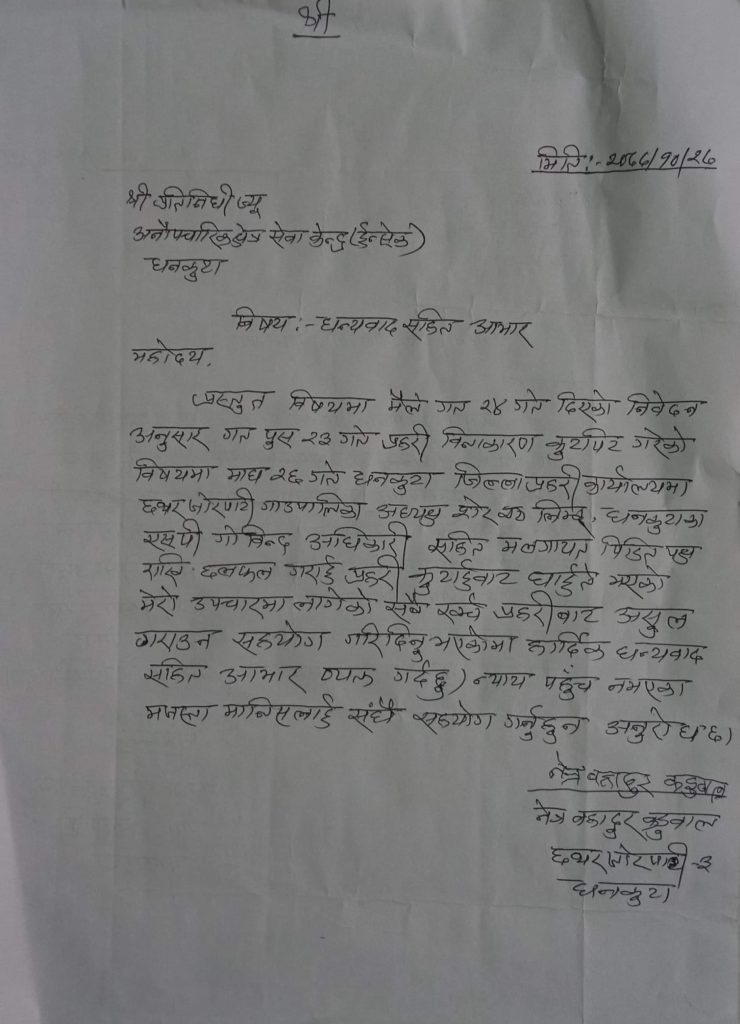 श्री
मिति:- २०७७/१०/२७
श्री प्रतिनिधी ज्यू
अनौपचारिक क्षेत्र सेवा केन्द्र (ईन्सेक)
धनकुटा
विषय:- धन्यवाद सहित आभार
महोदय,
प्रस्तुत विषयमा मैले गत २४ गते दिएको निवेदन
अनुसार गत पुस २३ गते प्रहरी विनाकारण कुटपिट गरेको
विषयमा माघ २६ गते धनकुटा जिल्ला प्रहरी कार्यालयमा
छथर जोरपाटी गाउपालिका अध्यक्ष लिम्बु, धनकुटाका
एसपी गोविन्द अधिकारी सहित मलगायत पिडित पक्ष
राखि छलफल गराई प्रहरी कुटाईबाट घाईते भएको
मेरो उपचारमा लागेको सबै खर्च प्रहरीबाट असुल
गराउन सहयोग गरिदिनु भएकोमा हार्दिक धन्यवाद
सहित आभार व्यक्त गर्दछु। न्याय पहुंच नभएका
मजस्ता मानिसलाई संधै सहयोग गर्नुहुन अनुरोध छ।
नेत्र बहादुर कडुवाल
नेत्र बहादुर कडुवाल
छथर जोरपाटी-३
धनकुटा